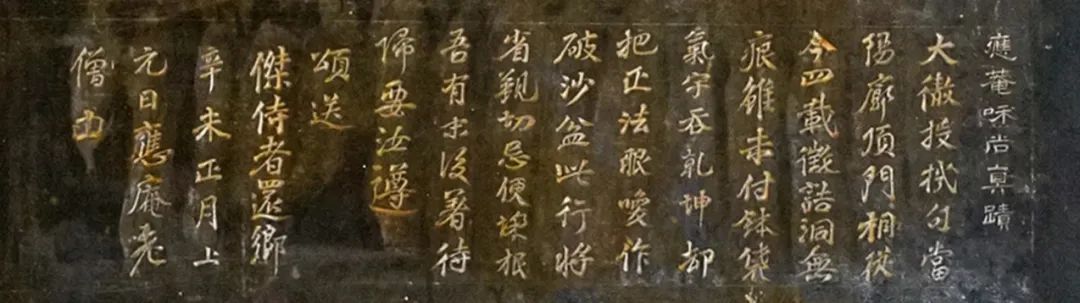 應菴咊尚真蹟
大徹投機句當
陽廓頂門相從
今四載徵詰洞無
痕雖未付鉢袋
氣宇吞乾坤却
把正法眼喚作
破沙盆此行將
省覲切忌便跺根
吾有末後著待
歸要汝遵
頌送
傑侍者還鄉
辛未正月上
元日應庵老
僧